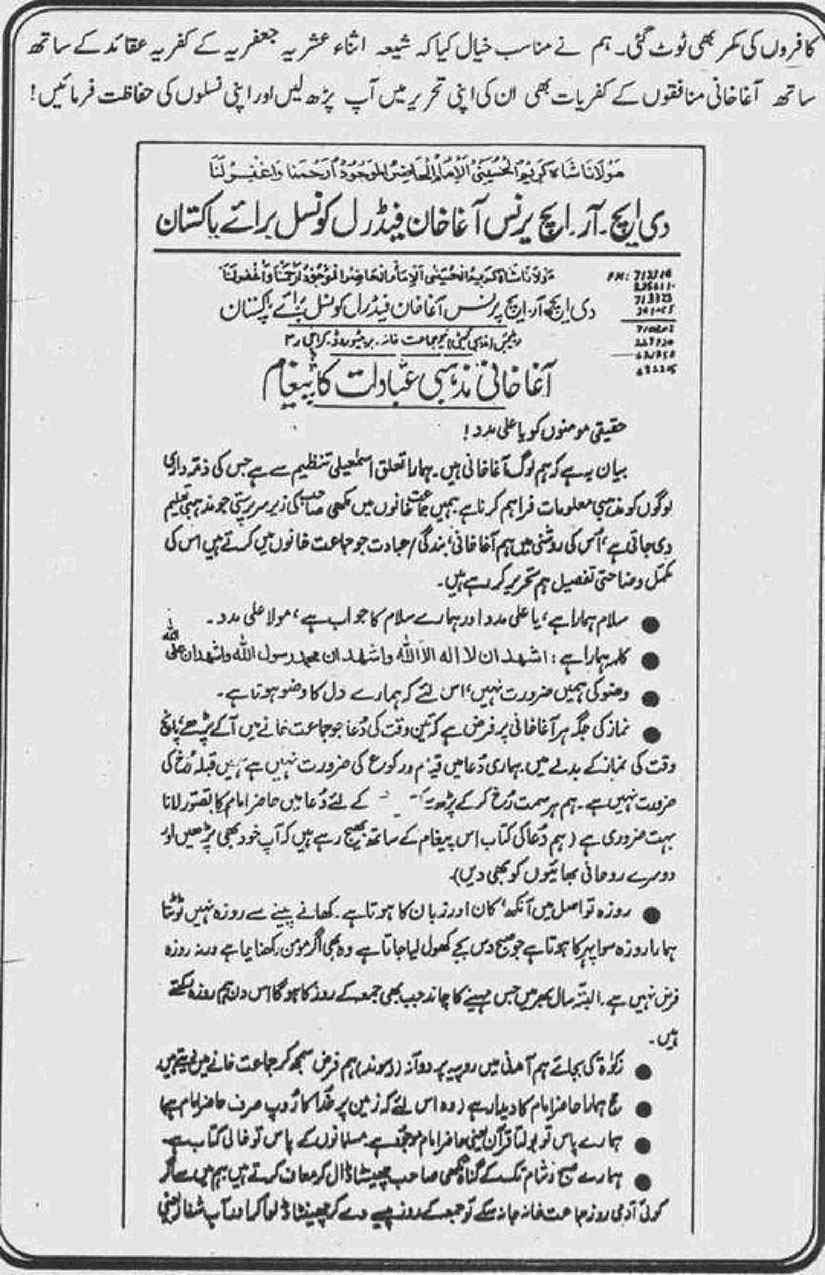 کافروں کی کمر بھی ٹوٹ گئی۔ ہم نے مناسب خیال کیا کہ شیعہ اثناء عشریہ جعفریہ کے کفریہ عقائد کے ساتھ
ساتھ آغاخانی منافقوں کے کفریات بھی ان کی اپنی تحریر میں آپ پڑھ لیں اور اپنی نسلوں کی حفاظت فرمائیں!
مَوْلَانَا شَاہ کَرِیْمُ الْحُسَیْنِیُ الْاِمَامُ الْحَاضِرُ الْمَوْجُوْدُ اَرْحَمْنَا وَاغْفِرْلَنَا
دی ایچ۔آر۔ایچ پرنس آغا خان فیڈرل کونسل برائے پاکستان
مَوْلَانَا شَاہ کَرِیْمُ الْحُسَیْنِیُ الْاِمَامُ الْحَاضِرُ الْمَوْجُوْدُ اَرْحَمْنَا وَاغْفِرْلَنَا
دی ایچ۔آر۔ایچ پرنس آغاخان فیڈرل کونسل برائے پاکستان
جماعت خانہ۔ کراچی
آغاخانی مذہبی عبادات کا پیغام
حقیقی مومنوں کو یا علی مدد!
بیان یہ ہے کہ ہم لوگ آغاخانی ہیں۔ ہمارا تعلق اسمٰعیلی تنظیم سے ہے جس کی ذمہ داری
لوگوں کو مذہبی معلومات فراہم کرنا ہے ہمیں جماعت خانوں میں مکھی صاحب کی زیر سرپرستی جو مذہبی تعلیم
دی جاتی ہے، اُس کی روشنی میں ہم آغاخانی، بندگی/عبادت جو جماعت خانوں میں کرتے ہیں اس کی
مکمل وضاحتی تفصیل ہم تحریر کر رہے ہیں۔
● سلام ہمارا ہے، یا علی مدد اور ہمارے سلام کا جواب ہے، مولا علی مدد۔
● کلمہ ہمارا ہے: اشہد ان لا الہ الا اللہ واشہد ان محمد رسول اللہ واشہد ان علی اللہ
● وضو کی ہمیں ضرورت نہیں، اس لئے کہ ہمارے دل کا وضو ہوتا ہے۔
● نماز کی جگہ ہر آغاخانی پر فرض ہے کہ تین وقت کی دُعا جو جماعت خانے میں آکے پڑھے، پانچ
وقت کی نماز کے بدلے میں۔ ہماری دُعا میں قیام و رکوع کی ضرورت نہیں ہے ہمیں قبلہ رُخ کی
ضرورت نہیں ہے۔ ہم ہر سمت رُخ کر کے پڑھ کے لئے دُعا میں حاضر امام کا تصور لانا
بہت ضروری ہے (ہم دُعا کی کتاب اس پیغام کے ساتھ بھیج رہے ہیں کہ آپ خود بھی پڑھیں اور
دوسرے روحانی بھائیوں کو بھی دیں)۔
● روزہ تو اصل میں آنکھ، کان اور زبان کا ہوتا ہے۔ کھانے پینے سے روزہ نہیں ٹوٹتا
ہمارا روزہ سوا پہر کا ہوتا ہے جو صبح دس بجے کھول لیا جاتا ہے وہ بھی اگر مومن رکھنا چاہے ورنہ روزہ
فرض نہیں ہے۔ البتہ سال بھر میں جس مہینے کا چاند جب بھی جمعہ کے روز کا ہوگا اس دن ہم روزہ رکھتے
ہیں۔
● زکوٰۃ کی بجائے ہم آمدنی میں روپیہ پر دو آنہ (دسوند) ہم فرض سمجھ کر جماعت خانے میں دیتے ہیں
● حج ہمارا حاضر امام کا دیدار ہے (وہ اس لئے کہ زمین پر خُدا کا رُوپ صرف حاضر امام ہے)
● ہمارے پاس تو بولتا قرآن یعنی حاضر امام موجود ہے مسلمانوں کے پاس تو خالی کتاب ہے
● ہمارے صبح و شام تک کے گناہ مکھی صاحب چھینٹا ڈال کر معاف کرتے ہیں ہم میں سے اگر
کوئی آدمی روز جماعت خانہ نہ جا سکے تو جمعہ کے روز پیسے دے کر چھینٹا ڈلوا کر اور آپ شفا یعنی